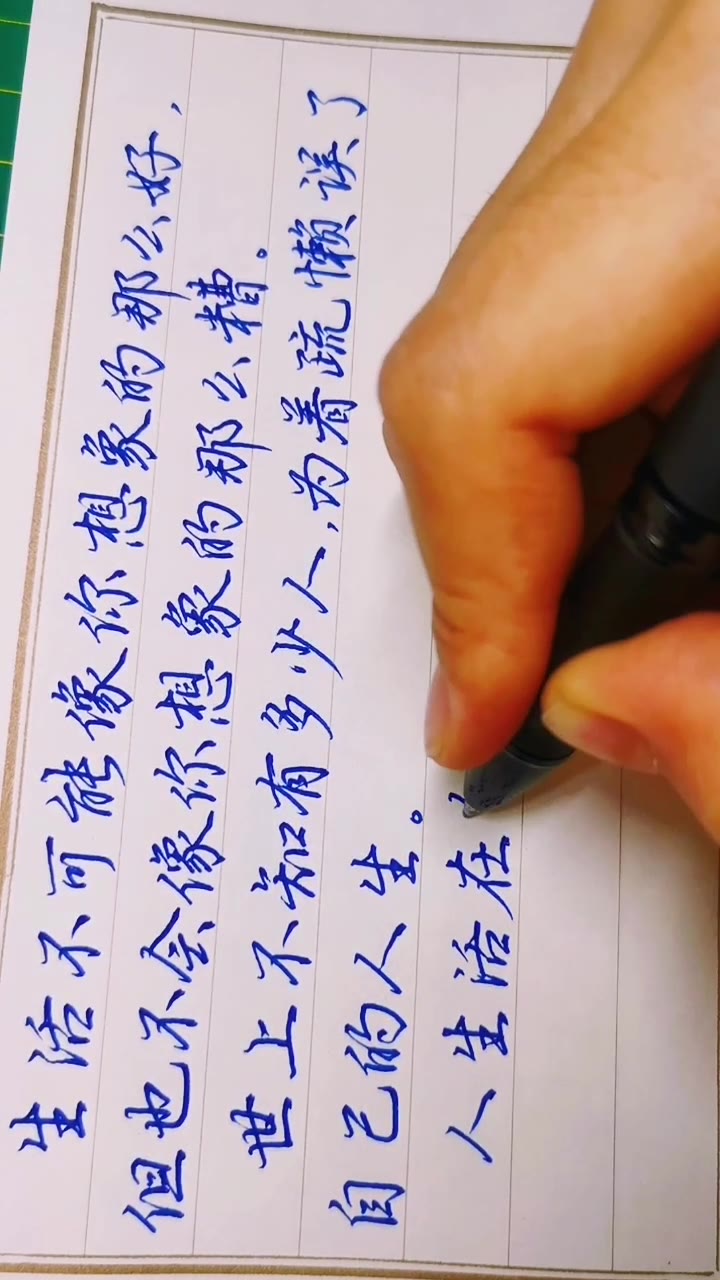 生活不可能像你想象的那么好，
但也不会像你想象的那么糟。
世上不知有多少人，为着疏懒误了
自己的人生。
人生活在